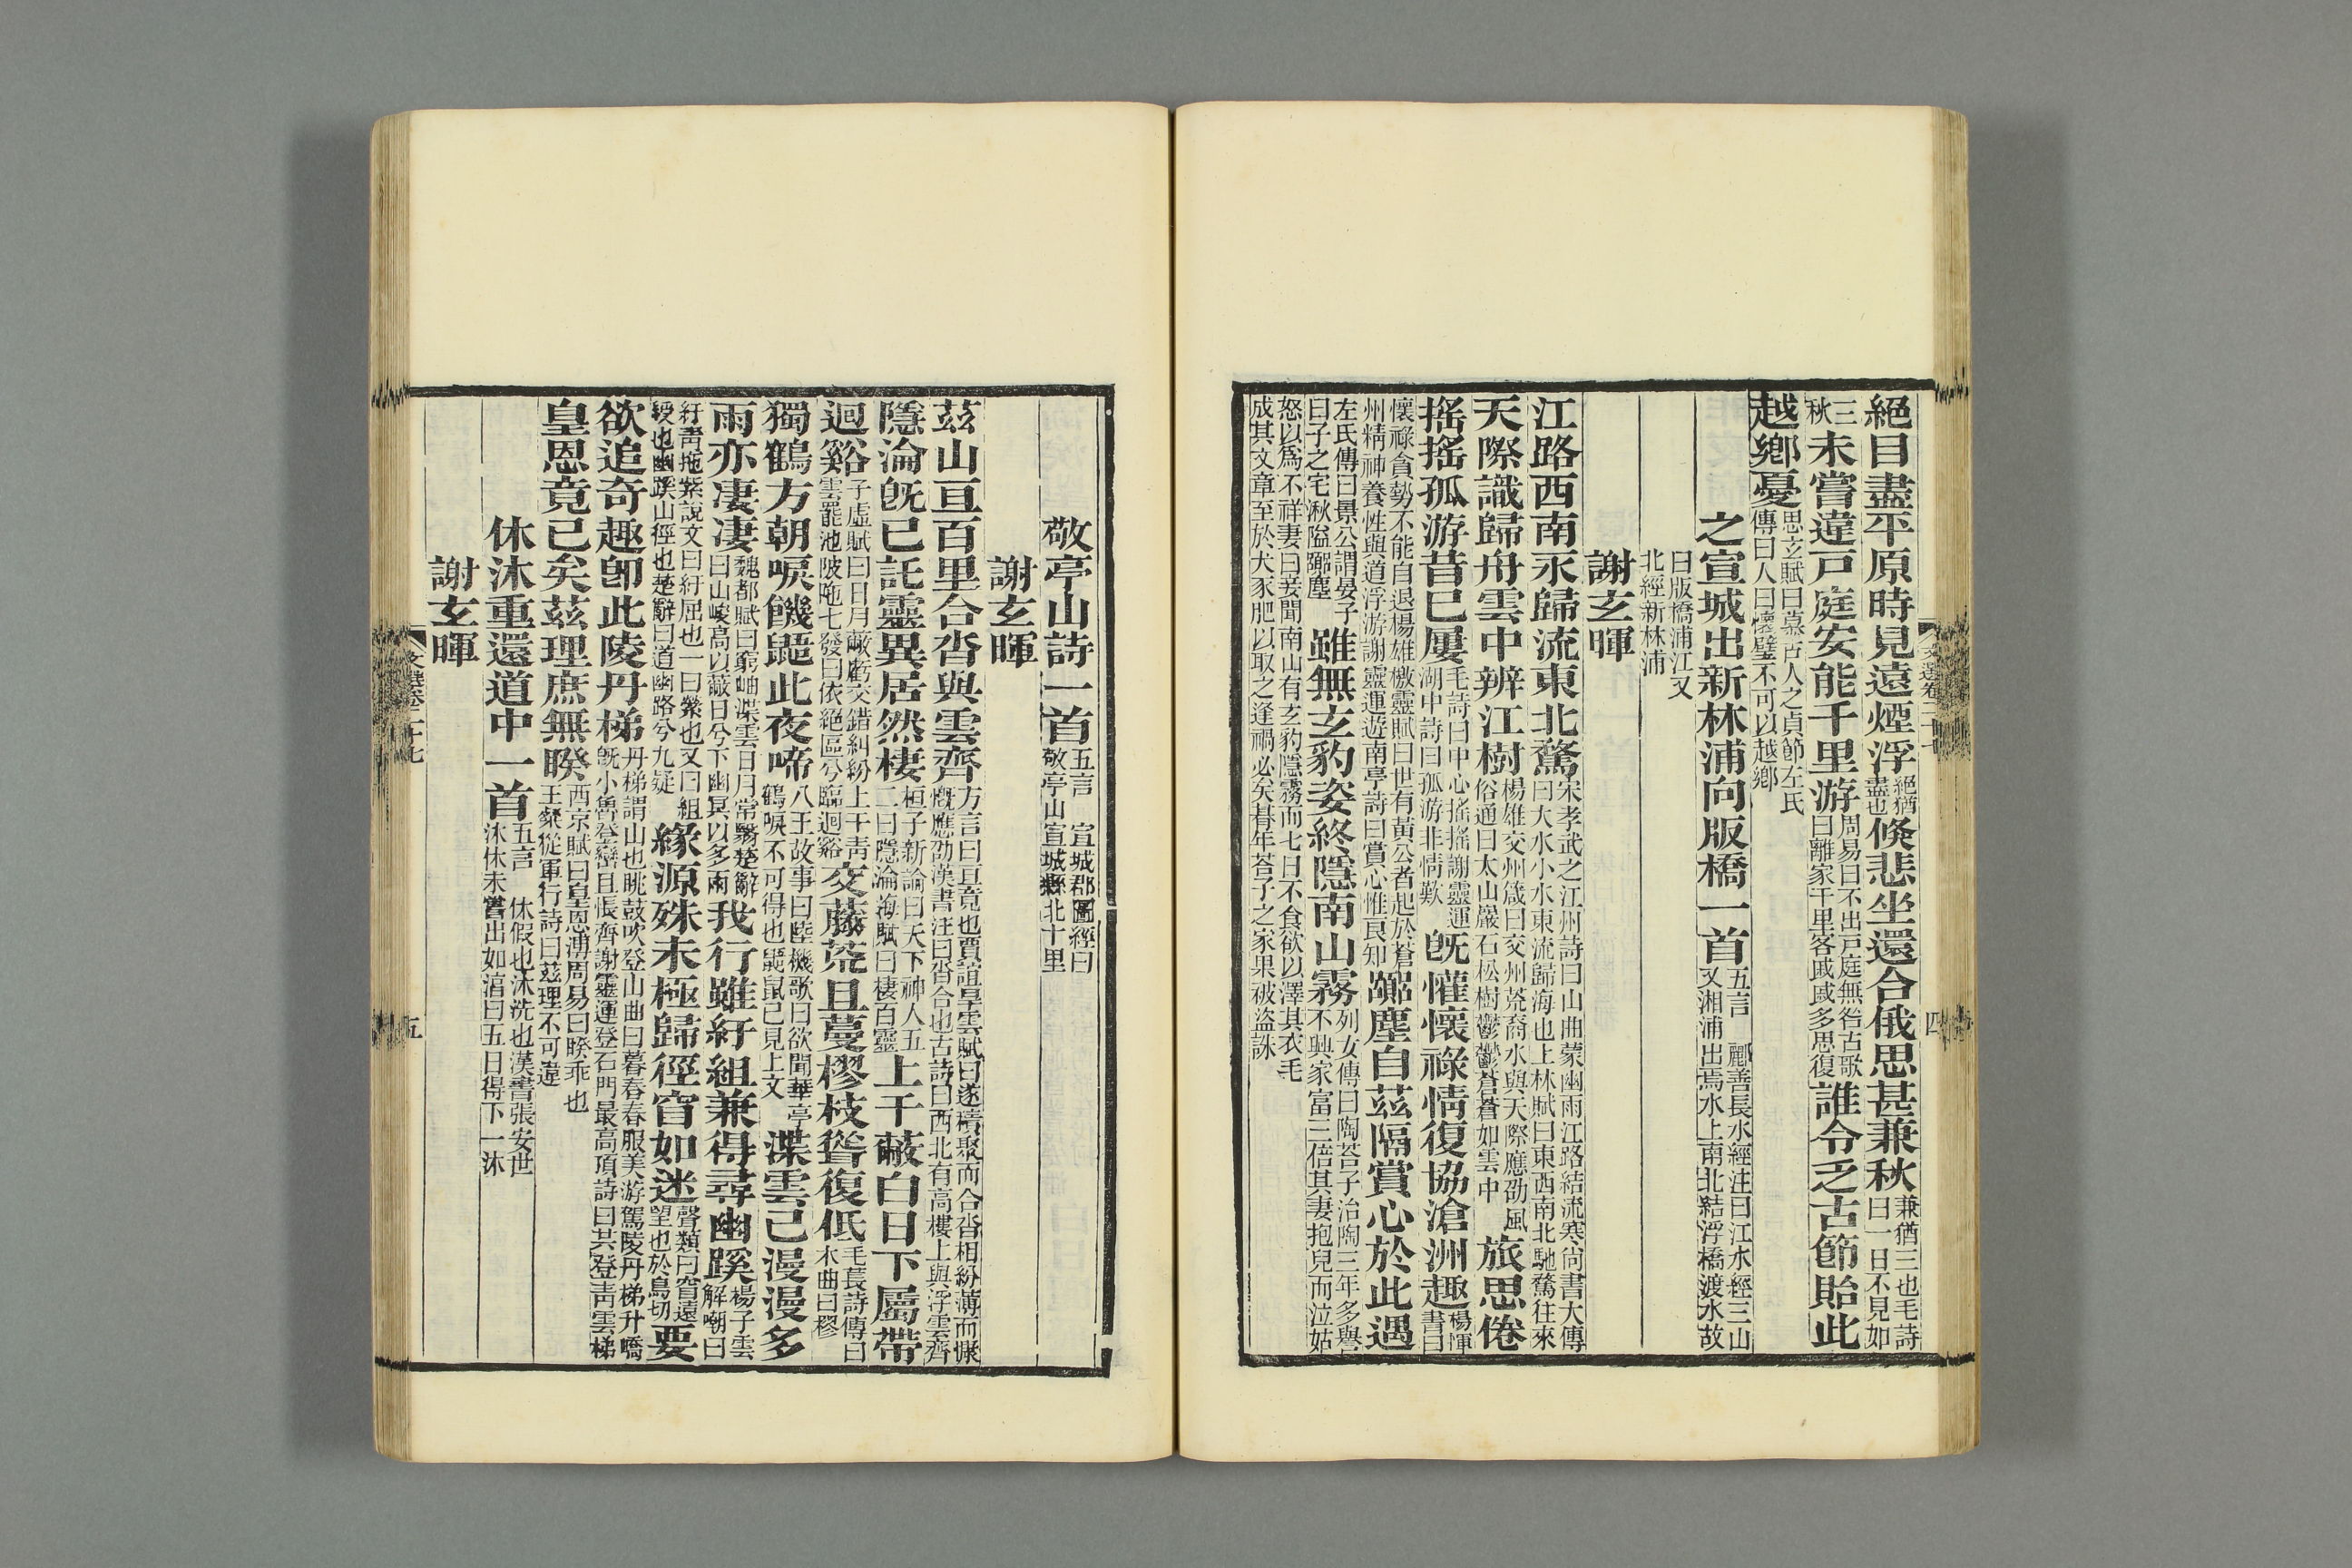 絕目盡平原時見遠煙浮絕猶盡也倏悲坐還合俄思甚兼秋兼猶三也毛詩曰一日不見如
三秋未嘗違戸庭安能千里游周易曰不出戸庭無咎古歌曰離家千里客戚戚多思復誰令乏古節貽此
越鄉憂思玄賦曰慕古人之貞節左氏傳曰人曰懷璧不可以越鄉
之宣城出新林浦向版橋一首五言 酈善長水經注曰江水經三山又湘浦出焉水上南北結浮橋渡水故
曰版橋浦江又北經新林浦
謝玄暉
江路西南永歸流東北騖宋孝武之江州詩曰山曲蒙幽雨江路結流寒尚書大傳曰大水小水東流歸海也上林賦曰東西南北馳騖往來
天際識歸舟雲中辨江樹楊雄交州箴曰交州荒裔水與天際應劭風俗通曰太山巖石松樹鬱鬱蒼蒼如雲中旅思倦
搖搖孤游昔已屢毛詩曰中心搖搖謝靈運湖中詩曰孤游非情歎旣懽懷祿情復協滄洲趣楊惲書曰
懷祿貪勢不能自退楊雄檄靈賦曰世有黃公者起於蒼州精神養性與道浮游謝靈運遊南亭詩曰賞心惟良知囂塵自茲隔賞心於此遇
左氏傳曰景公謂晏子曰子之宅湫隘囂塵雖無玄豹姿終隱南山霧列女傳曰陶荅子治陶三年多譽不興家富三倍其妻抱兒而泣姑
怒以爲不祥妻曰妾聞南山有玄豹隱霧而七日不食欲以澤其衣毛成其文章至於犬豕肥以取之逢禍必矣朞年荅子之家果被盜誅
文選卷二十七
四
敬亭山詩一首五言 宣城郡圖經曰敬亭山宣城縣北十里
謝玄暉
茲山亘百里合沓與雲齊方言曰亘竟也賈誼旱雲賦曰遂積聚而合沓相紛薄而慷慨應劭漢書注曰沓合也古詩曰西北有高樓上與浮雲齊
隱淪旣已託靈異居然棲桓子新論曰天下神人五二曰隱淪海賦曰棲百靈上干蔽白日下屬帶
迴谿子虛賦曰日月蔽虧交錯糾紛上干靑雲罷池陂陁七發曰依絕區兮臨迴谿交藤荒且蔓樛枝聳復低毛萇詩傳曰木曲曰樛
獨鶴方朝唳飢鼯此夜啼八王故事曰陸機歎曰欲聞華亭鶴唳不可得也鼯鼠已見上文渫雲已漫漫多
雨亦凄凄魏都賦曰窮岫渫雲日月常翳楚辭曰山峻高以蔽日兮下幽冥以多雨我行雖紆組兼得尋幽蹊楊子雲解嘲曰
紆靑拖紫說文曰紆屈也一曰縈也又曰組綬也幽蹊山徑也楚辭曰道幽路兮九疑緣源殊未極歸徑窅如迷聲類曰窅遠望也於鳥切要
欲追奇趣卽此陵丹梯丹梯謂山也眺鼓吹登山曲曰暮春春服美游駕陵丹梯升嶠旣小魯登巒且悵齊謝靈運登石門最高頂詩曰共登靑雲梯
皇恩竟已矣茲理庶無睽西京賦曰皇恩溥周易曰睽乖也王粲從軍行詩曰茲理不可違
休沐重還道中一首五言 休假也沐洗也漢書張安世沐休未嘗出如淳曰五日得下一沐
謝玄暉
文選卷二十七
五